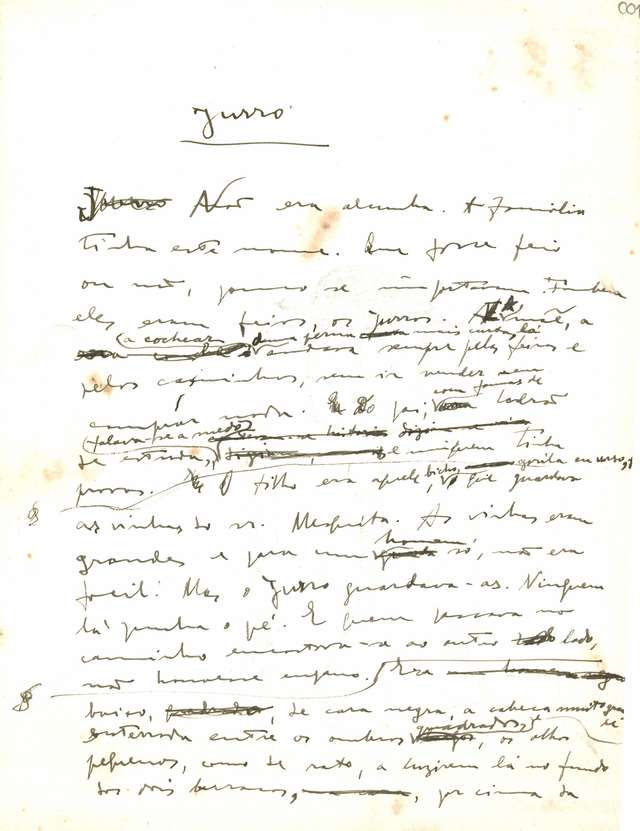 001
Jurro
Não era alcunha. A família
tinha este nome. Que fosse feio
ou não, pouco se importavam. Também
eles eram feios, os Jurros. A mãe, a
a cochear duma perna mais curta, lá
andava sempre pelas feiras e
pelos caminhos, sem ir vender nem
comprar nada. Do pai, com famas de ladrão
de estrada, falava-se a medo, e ninguém tinha
provas. O filho era aquele bicho, gorila em verso, que guardava
as vinhas do sr. Mesquita. As vinhas eram
grandes e para um homem só, não era
fácil. Mas o Jurro guardava-as. Ninguém
lá punha o pé. E quem passava no
caminho encostava-se ao outro lado,
não houvesse engano. Era
baixo, de cara negra, a cabeça muito grande
enterrada entre os ombros quadrados, os olhos
pequenos, como de rato, a luzirem lá no fundo
dos dois buracos, por cima da